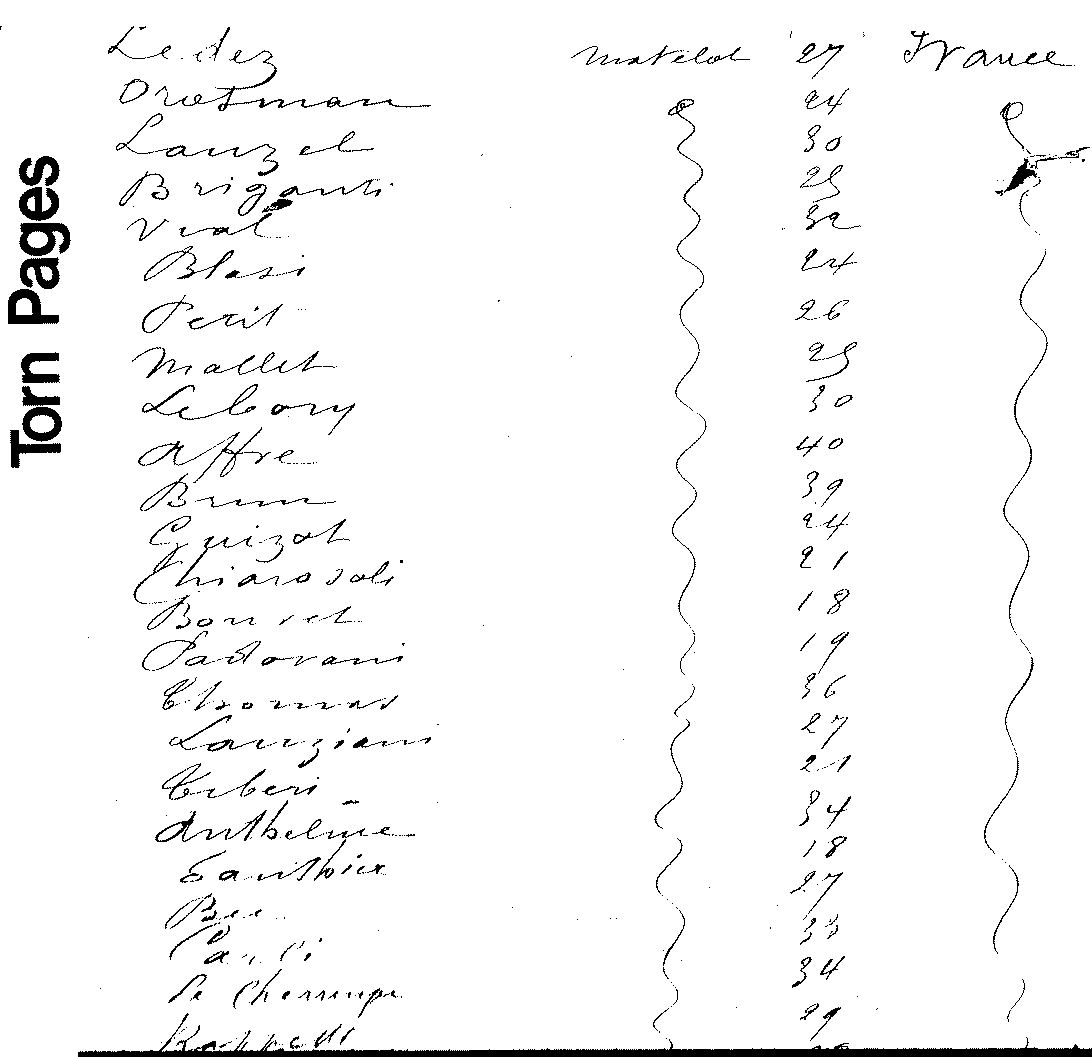 Torn Pages
Ledez matelot 27 France
Drotman 24
Lauzel 30
Briganti 25
Vial 32
Blasi 24
Petit 26
Mallet 25
Lebory 30
Affre 40
Brun 39
Guizot 24
Chiarosoli 21
Bonnet 18
Padovani 19
Thomas 36
Lanziani 27
Tiberi 21
Anthelme 34
Gauthier 18
27
Carli 33
34
29